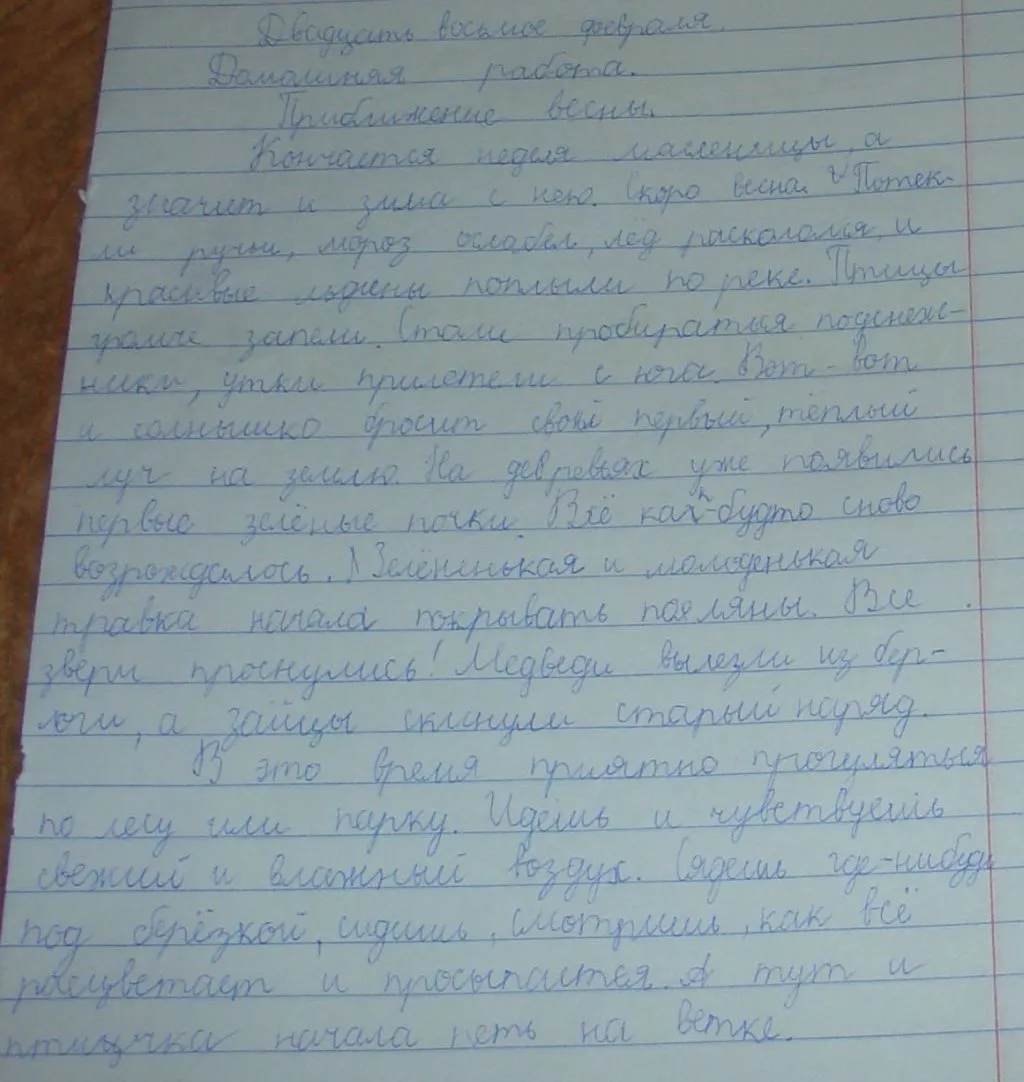 Двадцать восьмое февраля.
Домашняя работа.
Приближение весны.
Кончается неделя масленицы, а
значит и зима с нею. Скоро весна. √ Потек-
ли ручьи, мороз ослабел, лёд раскололся, и
красивые льдины поплыли по реке. Птицы
громче запели. Стали пробираться подснеж-
ники, утки прилетели с юга. Вот-вот
и солнышко бросит свой первый, тёплый
луч на землю. На деревьях уже появились
первые зелёные почки. Всё как-будто сново
возрождалось. Зелёненькая и молоденькая
травка начала покрывать поляны. Все
звери проснулись! Медведи вылезли из бер-
логи, а зайцы скинули старый наряд.
В это время приятно прогуляться
по лесу или парку. Идёшь и чувствуешь
свежий и влажный воздух. Сядешь где-нибудь
под берёзкой, сидишь, смотришь, как всё
расцветает и просыпается. А тут и
птичка начала петь на ветке.